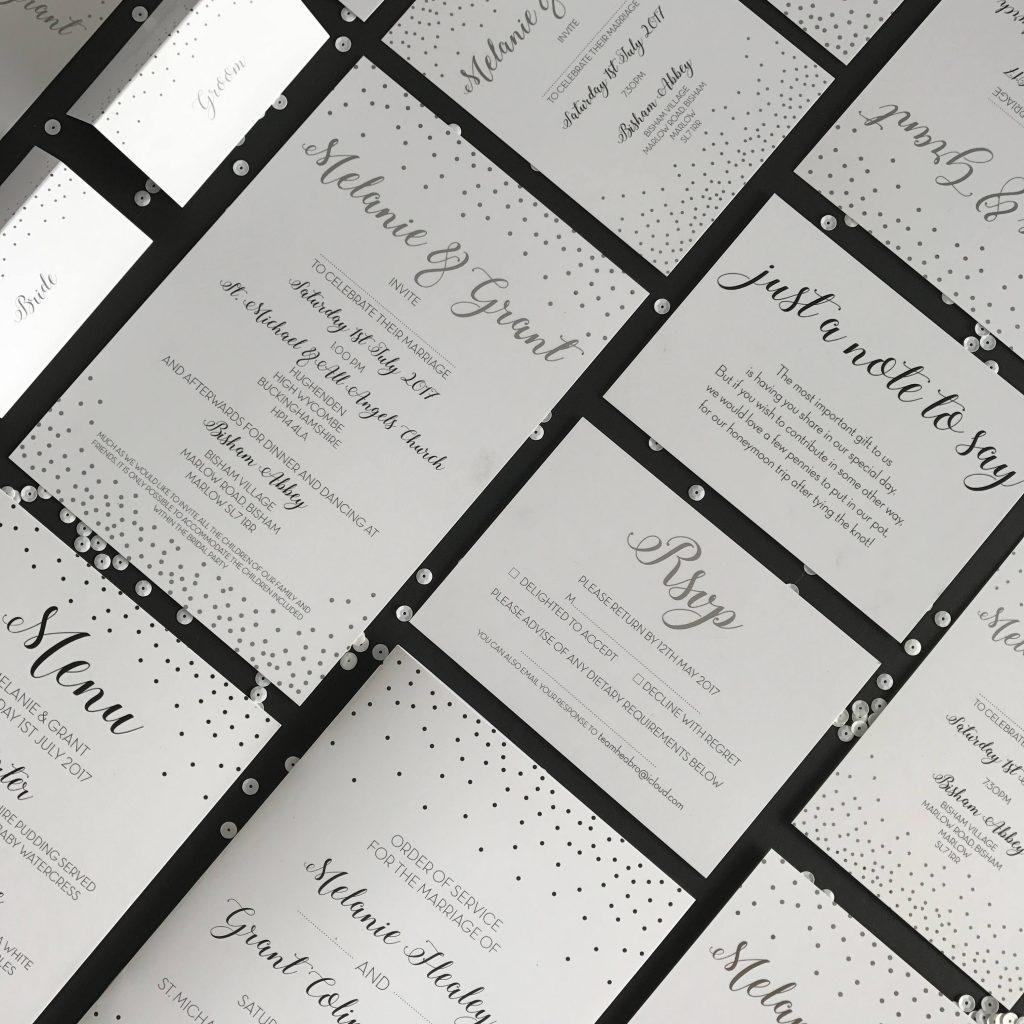 Grant
Groom
Bride
Melanie &
INVITE
TO CELEBRATE THEIR MARRIAGE
Saturday 1st July 2017
7.30PM
Bisham Abbey
BISHAM VILLAGE
MARLOW ROAD, BISHAM
MARLOW
SL7 1RR
& Grant
Melanie & Grant
INVITE
TO CELEBRATE THEIR MARRIAGE
Saturday 1st July 2017
1.00 PM
St. Michael & All Angels Church
HUGHENDEN
HIGH WYCOMBE
BUCKINGHAMSHIRE
HP14 4LA
AND AFTERWARDS FOR DINNER AND DANCING AT
Bisham Abbey
BISHAM VILLAGE
MARLOW ROAD, BISHAM
MARLOW SL7 1RR
MUCH AS WE WOULD LIKE TO INVITE ALL THE CHILDREN OF OUR FAMILY AND
FRIENDS, IT IS ONLY POSSIBLE TO ACCOMMODATE THE CHILDREN INCLUDED
WITHIN THE BRIDAL PARTY
just a note to say
The most important gift to us
is having you share in our special day.
But if you wish to contribute in some other way,
we would love a few pennies to put in our pot,
for our honeymoon trip after tying the knot!
Rsvp
PLEASE RETURN BY 12TH MAY 2017
M
DELIGHTED TO ACCEPT DECLINE WITH REGRET
PLEASE ADVISE OF ANY DIETARY REQUIREMENTS BELOW
YOU CAN ALSO EMAIL YOUR RESPONSE TO teamheabro@icloud.com
Menu
MELANIE & GRANT
1ST JULY 2017
PUDDING SERVED
WATERCRESS
WHITE
ORDER OF SERVICE
FOR THE MARRIAGE OF
Melanie Healey
AND
Grant Colin
ST. MICHAEL
TO CELEBRATE
Saturday 1st
7.30PM
Bisham Abbey
BISHAM VILLAGE
MARLOW ROAD, BISHAM
MARLOW
SL7 1RR